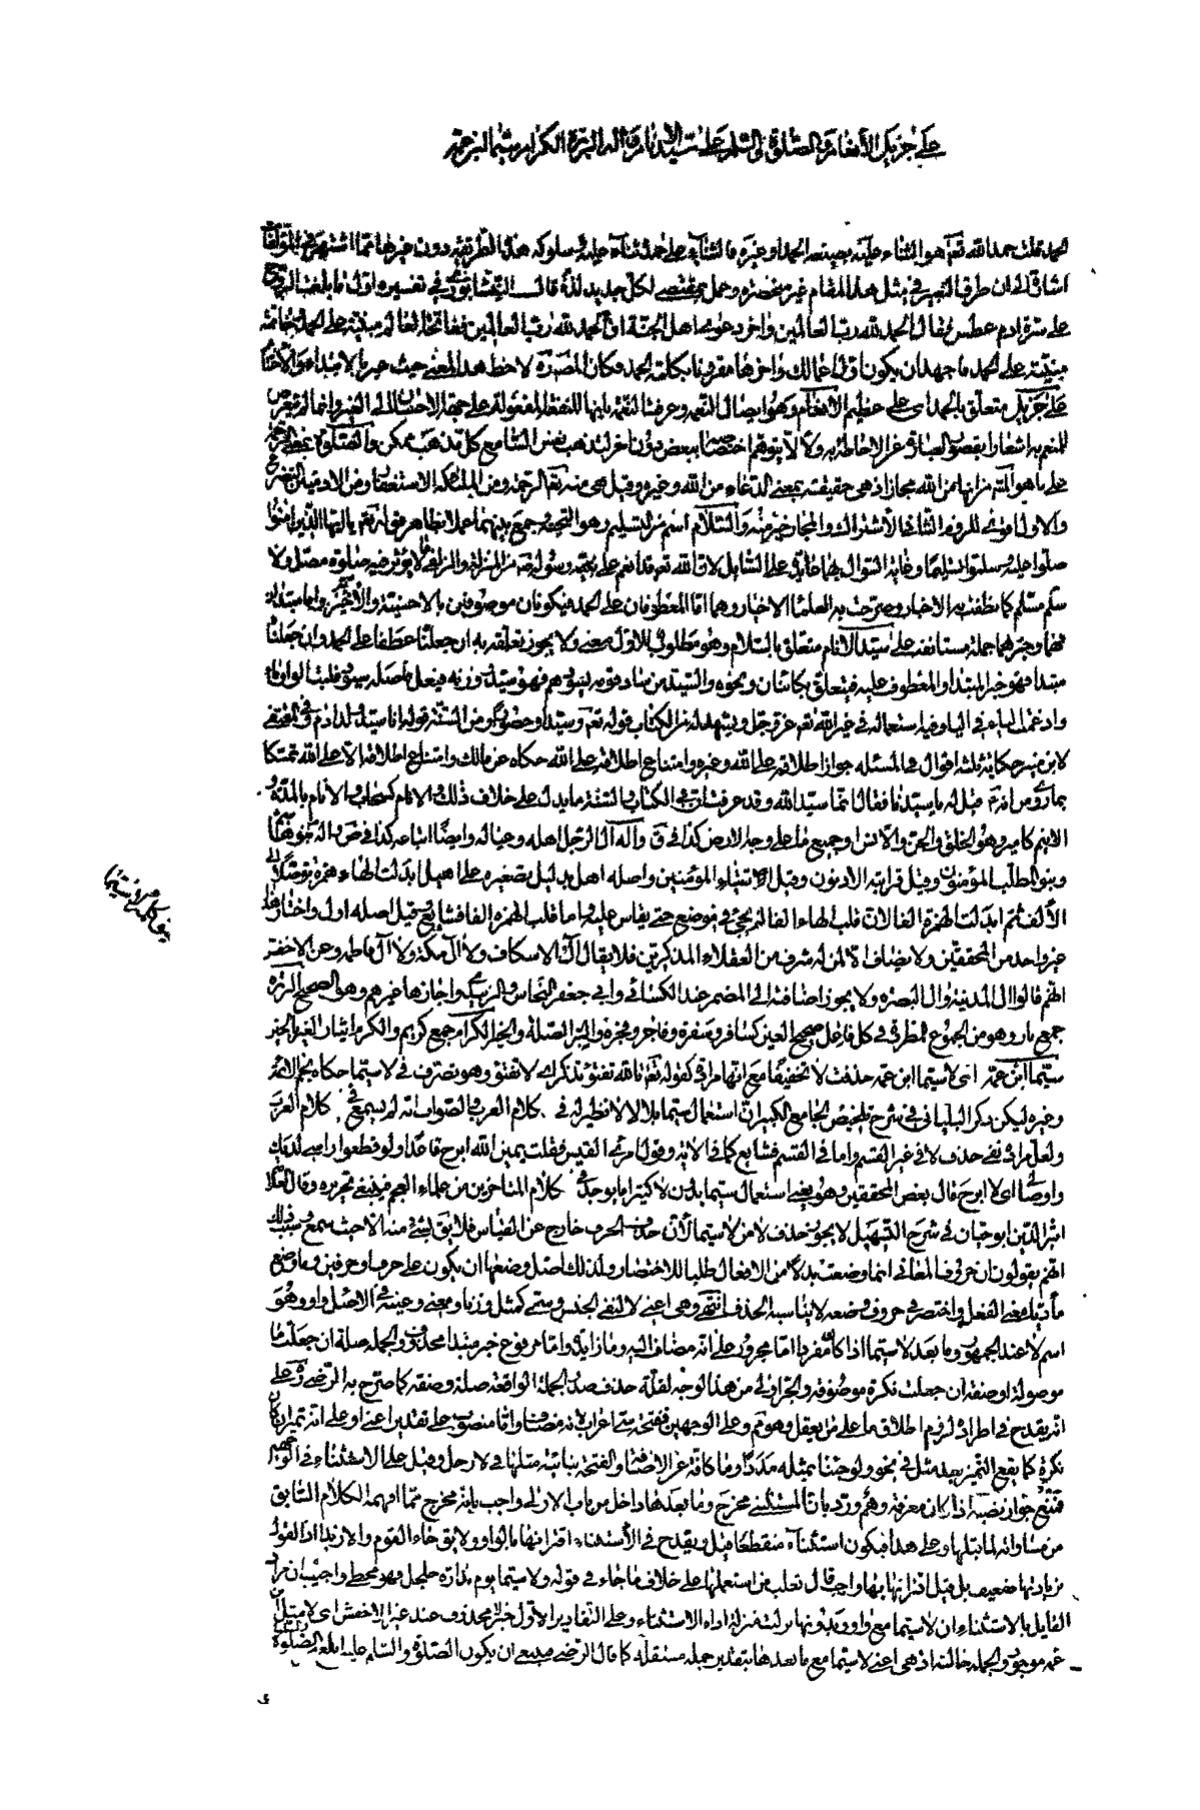 على جزيل الأنعام والصلوة والسلام على سيد الأنام وآله البررة الكرام سيما ابن عمه
الحمد قلت حمد الله تعم هو الثناء عليه بصيغة الحمد او غيره فالثناء في على حمد ثناء عليه سلوكه هذه الطريقة دون غيرها مما اشتهر في المؤلفات
اشارة الى ان طرق التعبير في مثل هذا المقام غير منحصرة وعمل بمقتضى لكل جديد لذة قال النيشابوري في تفسيره اول ما بلغ الروح
على سرة ادم عطس فقال الحمد لله رب العالمين واخر دعوى اهل الجنة ان الحمد لله رب العالمين ففاتحة العالم مبنية على الحمد وخاتمته
مبنية على الحمد فاجهد ان يكون اول اعمالك واخرها مقرونا بكلمة الحمد وكان المصنف ره لاحظ هذا المعنى حيث حمد بالابتداء والاختتام
على جزيل متعلق بالحمد اى على عظيم الانعام وهو ايصال النعمة وعرفت النعمة بانها المنفعة المفعولة على جهة الاحسان الى الغير وانما لم يتعرض
للمنعم به اشعارا بقصور العبارة عن الاحاطة به ولئلا يتوهم اختصاصه ببعض دون اخر لتذهب نفس السامع كل مذهب ممكن والصلوة بمعنى الرحمة
على ما هو المشهور من انها من الله مجاز اذ هى حقيقة بمعنى الدعاء من الله وغيره وقيل هى منه تعم الرحمة ومن الملئكة الاستغفار ومن الادميين التضرع
والاول اولى للزوم الثانى الاشتراك والمجاز خير منه والسلام اسم من التسليم وهو التحية وجمع بينهما عملا بظاهر قوله تعم يا ايها الذين امنوا
صلوا عليه وسلموا تسليما وغاية السؤال بهما عائدة على السائل لان الله تعم قد انعم على نبيه ورسوله ص من المنزلة والزلفى ما لا يؤثر فيه صلوة مصل ولا
سلم مسلم كما نطقت به الاخبار وصرحت به العلماء الاخيار وهما اما معطوفان على الحمد فيكونان موصوفين بالاحسنية والاخيرية واما مبتدأ
فهما وخبرهما جملة مستانفة على سيد الانام متعلق بالسلام وهو مطلوب للاول معنى ولا يجوز تعلقه به ان جعلنا عطفا على الحمد وان جعلنا
مبتدأ فهو خبر المبتدأ والمعطوف عليه فيتعلق بكائنان ونحوه والسيد من ساد قومه يسودهم فهو سيد وزنه فيعل فاصله سيود قلبت الواو ياء
وادغمت الياء في الياء وفيه استعماله في غير الله تعم عز وجل ويشهد له من الكتاب قوله تعم وسيدا وحصورا ومن السنة قوله انا سيد ولد ادم وفي المقتفى
لابن منير حكاية ثلثة اقوال في المسئلة جواز اطلاقه على الله وغيره وامتناع اطلاقه على الله حكاه عن مالك وامتناع اطلاقه الا على الله تمسكا
بما روى من انه ص قيل له يا سيدنا فقال انما سيد الله وقد عرفت ان في الكتاب والسنة ما يدل على خلاف ذلك والانام كسحاب والآنام بالمد و
الانيم كامير وهو الخلق والجن والانس او جميع ما على وجه الارض كذا في ق وآله آل الرجل اهله وعياله وايضا اتباعه كذا في ص وآله بنو هاشم
وبنو المطلب المؤمنون وقيل قرابته الادنون وقيل الاتقياء المؤمنين واصله اهل بدليل تصغيره على اهيل ابدلت الهاء همزة توصلا الى
الالف ثم ابدلت الهمزة الفا لان قلب الهاء الفا لم يجئ في موضع حتى يقاس عليه واما قلب الهمزة الفا فشايع وقيل اصله اول واختاره
غير واحد من المحققين ولا يضاف الا لمن له شرف من العقلاء المذكرين فلا يقال آل الاسكاف ولا آل مكة ولا آل فاطمة وعن الاخفش
انهم قالوا ال المدينة وال البصرة ولا يجوز اضافته الى المضمر عند الكسائي وابي جعفر النحاس والزبيدي واجازها غيرهم وهو الصحيح البررة
جمع بار وهو من الجموع المطردة في كل فاعل صحيح العين كسافر وسفرة وفاجر وفجرة والبر الصلة والخير الكرام جمع كريم والكرم ايثار الغير بالخير
سيما ابن عمه اى لاسيما ابن عمه حذفت لا تخفيفا مع انها مرادة كقوله تعم تالله تفتؤ تذكر اى لا تفتؤ وهو تصرف في لاسيما حكاه نجم الائمة
وغيره لكن ذكر البلياني في شرح تلخيص الجامع الكبير ان استعمال سيما بلا لا لا نظير له في كلام العرب والصواب انه لم يسمع في كلام العرب
ولعل مراده نفى حذف لا في غير القسم واما في القسم فشايع كما في الاية وقول امرئ القيس فقلت يمين الله ابرح قاعدا ولو قطعوا راسى لديك
واوصالى اى لا ابرح قال بعض المحققين وهو يعنى استعمال سيما بدون لا كثيرا ما يوجد في كلام المتاخرين من علماء العجم فينبغى تحريره وقال العلامة
اثير الدين ابو حيان في شرح التسهيل لا يجوز حذف لا من لاسيما لان حذف الحرف خارج عن القياس فلا يقال بشئ منه الا حيث سمع وسبب ذلك
انهم يقولون ان حروف المعاني انما وضعت بدلا من الافعال طلبا للاختصار ولذلك اصل وضعها ان يكون على حرف او حرفين وما وضع
مؤديا معنى الفعل واختصر في حروف وضعه لا يناسبه الحذف انتهى وهى اعنى لا لنفى الجنس وسى كمثل وزنا ومعنى وعينه في الاصل واو وهو
اسم لا عند الجمهور وما بعد لاسيما اذا كان مفردا اما مجرور على انه مضاف اليه وما زايدة واما مرفوع خبر مبتدا محذوف والجملة صلة ان جعلت ما
موصولة او صفة ان جعلت نكرة موصوفة والجر اولى من هذا الوجه لقلة حذف صدر الجملة الواقعة صلة وصفة كما صرح به الرضى ره على
انه يقدح في اطراده لزوم اطلاق ما على من يعقل وهو مم وعلى الوجهين ففتحة سى اعراب لانه مضاف واما منصوب على تقدير اعنى او على انه تمييز ان كان
نكرة كما يقع التمييز بعد مثل في نحو ولو جئنا بمثله مددا وما كافة عن الاضافة والفتحة بنائية مثلها في لا رجل وقيل على الاستثناء في الوجهين
فتقع جواز نصبه اذا كان معرفة وهم ورد بان المستثنى مخرج وما بعدها داخل من باب الاولى واجيب بانه مخرج مما افهمه الكلام السابق
من مساواته لما قبلها وعلى هذا فيكون استثناء منقطعا قيل ويقدح في الاستثناء اقترانها بالواو ولا يق جاء القوم والا زيدا اذ القول
بزيادتها ضعيف بل قيل اقترانها بها واجب قال ثعلب من استعملها على خلاف ما جاء في قوله ولا سيما يوم بدارة جلجل فهو مخطئ واجيب ان مراد
القايل بالاستثناء ان لاسيما مع واو وبدونها نزلت منزلة اداة الاستثناء وعلى التقادير الاول خبر لا محذوف عند غير الاخفش اى لا مثل
عمه موجود والجملة حالية اذ هى اعنى لاسيما مع ما بعدها بتقدير جملة مستقلة كما قال الرضى فمعنى ان يكون الصلاة والسلم عليه ابلغ الصلوة